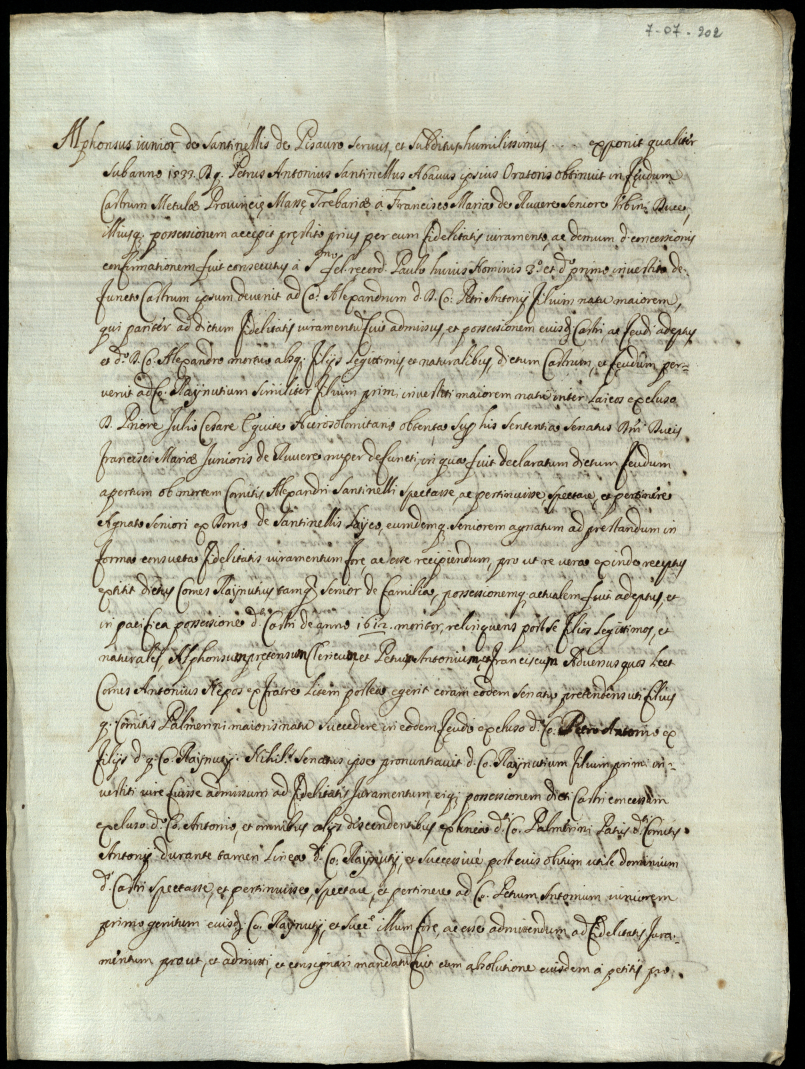 7-07-902
Alphonsus iunior de Santinellis de Pisauro Servus, et Subditus humilissimus .... exponit qualiter
sub anno 1533. Petrus Antonius Santinellus Abavus ipsius Oratoris obtinuit in feudum
Castrum Metulæ Provinciæ Massæ Trebariæ a Francisco Maria de Ruvere Seniore Urbini Duce,
Illiusq. possessionem accepit prestito prius per eum fidelitatis iuramento, ac demum d. concessionis
confirmationem fuit consecutus à fel. record. Paulo huius Nominis 3.º et d.º primo investito de-
functo Castrum ipsum devenit ad Co. Alexandrum d. Co. Petri Antonij filium natu maiorem,
qui pariter ad dictum fidelitatis iuramentũ fuit admissus, et possessionem eiusd. Castri, ac feudi adeptus
et d.º Co. Alexandro mortuo absq. filijs legittimis, et naturalibus, dictum Castrum, et feudum per-
venit ad Co. Raynutium similiter filium primi investiti maiorem natu inter laicos excluso
Priore Julio Cesare Equite Hierosolomitano obtenta sup. his sententia Senatus Ducis
Francisci Mariæ Junioris de Ruvere nuper defuncti, in qua fuit declaratum dictum feudum
apertum ob mortem Comitis Alexandri Santinelli spectasse, ac pertinuisse, spectare, et pertinere
Agnato Seniori ex Domo de Santinellis Layco, eumdemq. seniorem agnatum ad prestandum in
forma consueta fidelitatis iuramentum fore, ac esse recipiendum, pro ut re vera exinde receptus
extitit dictus Comes Raynutius tamq. senior de familia, possessionemq. actualem fuit adeptus, et
in pacifica possessione d. Castri de anno 1612. moritur, relinquens post se filios legittimos, et
naturales, Alphonsum pretensum Clericum et Petrum Antonium, Franciscum Adversus quos licet
Comes Antonius Nepos ex fratre litem postea egerit coram eodem Senatu pretendens uti filius
q. Comitis Palmerini maioris natu succedere in eodem feudo excluso d.º Co. Petro Antonio ex
filijs d. q. Co. Raynutij. Nihil. Senatus ipse pronuntiavit d. Co. Raynutium filium primi in-
vestiti iure fuisse admissum ad fidelitatis Juramentum, eiq. possessionem dicti Castri concessam
excluso d.º Co. Antonio, et omnibus alijs discendentibus ex linea d. Co. Palmerini Patris d. Comitis
Antonij durante tamen linea d. Co. Raynutij, et successivè post eius obitum utile dominium
d. Castri spectasse, et pertinuisse, spectare, et pertinere ad Co. Petrum Antonium iuniorem
primogenitum eiusd. Co. Raynutij, et illum fore, ac esse admittendum ad fidelitatis Jura-
mentum prout, et admitti, et consignari mandatũ fuit cum absolutione eiusdem à petitis pro.